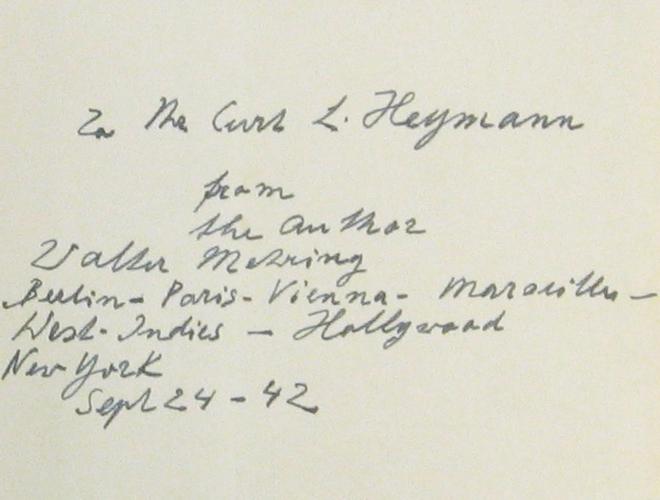 To Mr Curt L. Heymann
from
the author
Walter Mehring
Berlin - Paris - Vienna - Marseille -
West-Indies - Hollywood
New York
Sept 24 - 42